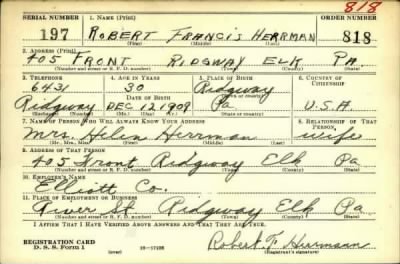 818
SERIAL NUMBER 1. NAME (Print) ORDER NUMBER
197 ROBERT FRANCIS HERRMAN 818
(First) (Middle) (Last)
2. ADDRESS (Print)
405 FRONT RIDGWAY ELK PA.
(Number and street or R. F. D. number) (Town) (County) (State)
3. TELEPHONE 4. AGE IN YEARS 5. PLACE OF BIRTH 6. COUNTRY OF CITIZENSHIP
6431 30 Ridgway
DATE OF BIRTH (Town or county)
Ridgway DEC. 12 1909 Pa U.S.A.
(Exchange) (Mo.) (Day) (Yr.) (State or country)
7. NAME OF PERSON WHO WILL ALWAYS KNOW YOUR ADDRESS 8. RELATIONSHIP OF THAT PERSON
Mrs. Helen Herrman wife
(Mr., Mrs., Miss) (First) (Middle) (Last)
9. ADDRESS OF THAT PERSON
405 Front Ridgway Elk Pa
(Number and street or R. F. D. number) (Town) (County) (State)
10. EMPLOYER'S NAME
Elliott Co.
11. PLACE OF EMPLOYMENT OR BUSINESS
River St. Ridgway Elk Pa
(Number and street or R. F. D. number) (Town) (County) (State)
I AFFIRM THAT I HAVE VERIFIED ABOVE ANSWERS AND THAT THEY ARE TRUE.
REGISTRATION CARD
D. S. S. Form 1 (over) Robert F. Herrmann
(Registrant's signature)